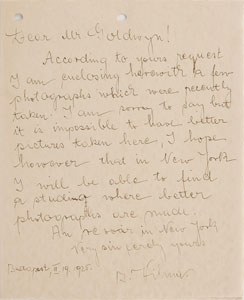 Dear Mr Goldwyn!
According to yours request
I am enclosing herewith a few
photographs which were recently
taken. I am sorry to say but
it is impossible to have better
pictures taken here, I hope
however that in New York
I will be able to find
a studio where better
photographs are made.
Au revoir in New York
Very sincerely yours
Budapest, 19. 1925.